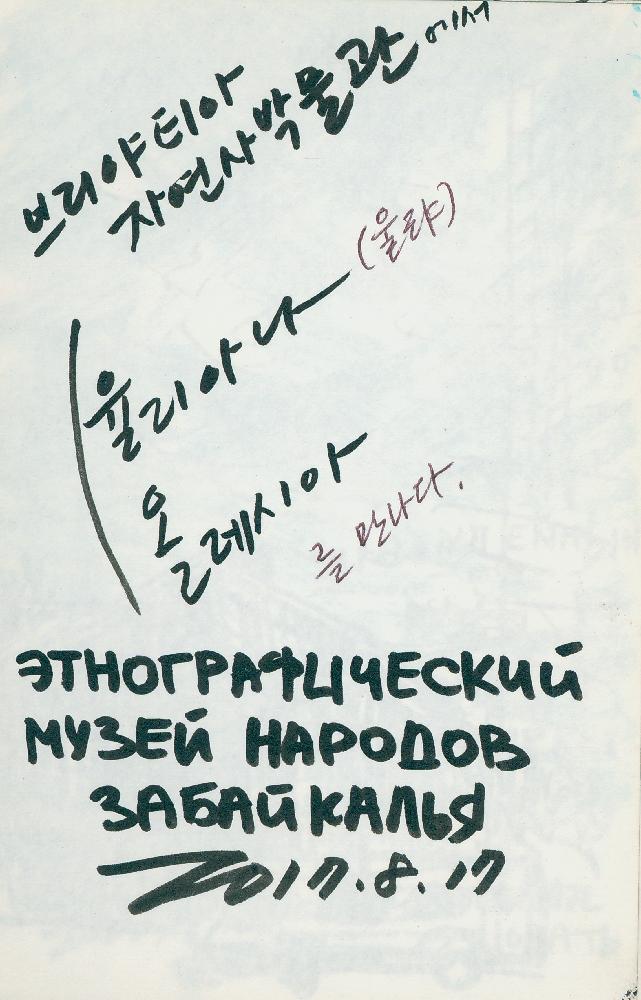 브리야티아
자연사박물관에서
율리아나 (율랴)
올레시아
를 만나다.
ЭТНОГРАФИЧЕСКИЙ
МУЗЕЙ НАРОДОВ
ЗАБАЙКАЛЬЯ
2017.8.17